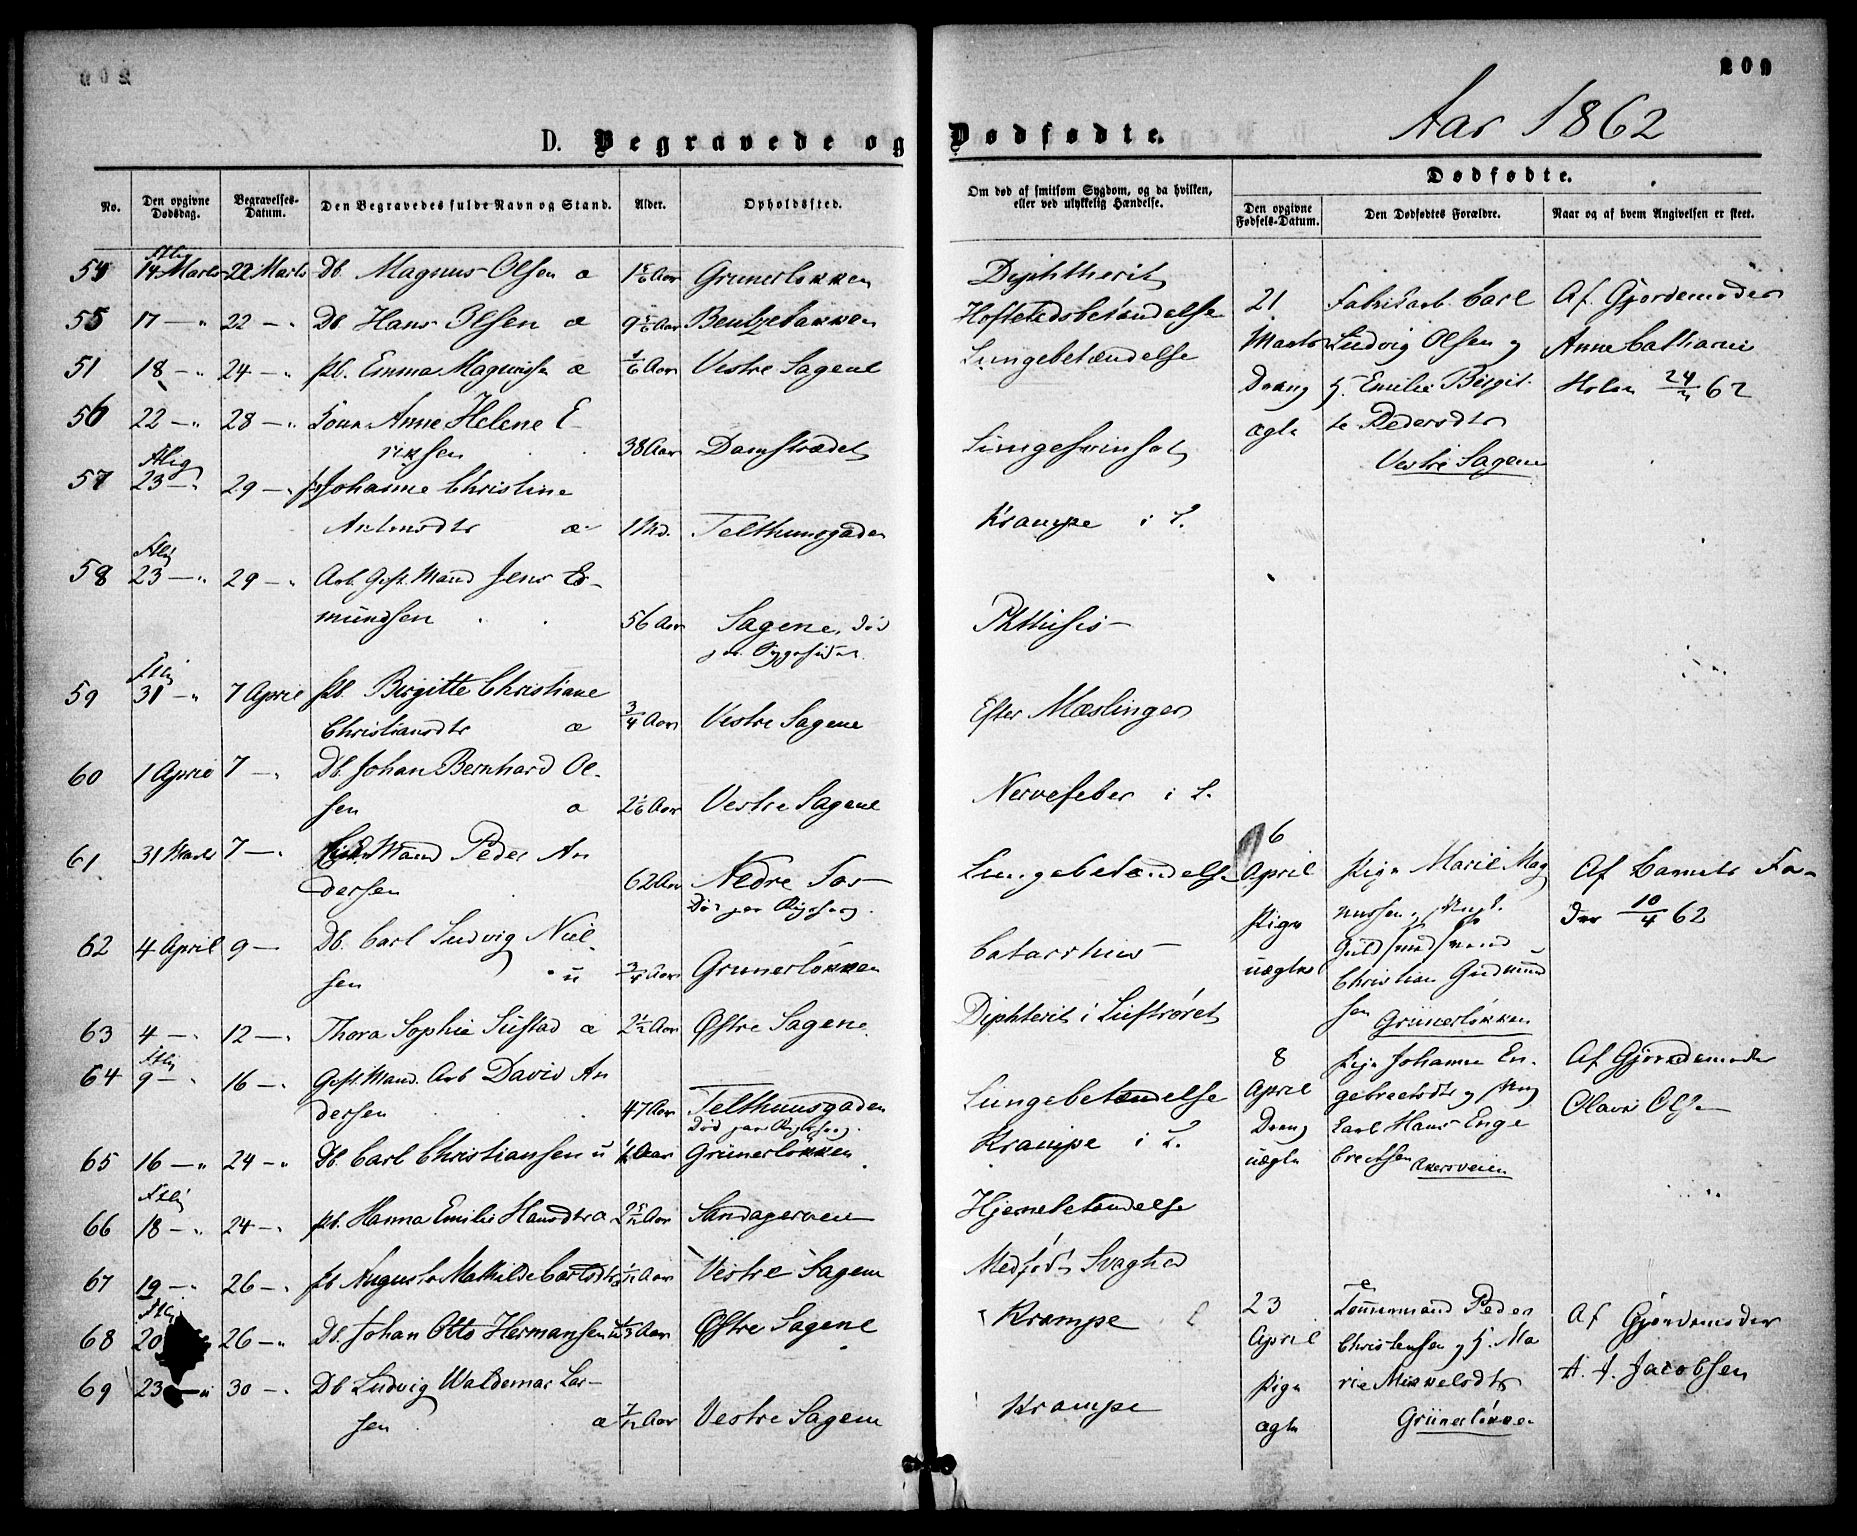 209
Aar 1862
D. Begravede og Dødfødte.
No. Den opgivne Dødsdag. Begravelses-Datum. Den Begravedes fulde Navn og Stand. Alder. Opholdssted. Om død af smitsom Sygdom, og da hvilken, eller ved ulykkelig Hændelse.
Dødfødte.
Den opgivne Fødsels-Datum. Den Dødfødtes Forældre. Naar og af hvem Angivelsen er skeet.
54 14 Marts 22 Marts Db. Magnus Olsen æ 1 5/6 Aar Grunerløkken Diphtherit
55 17 — " 22 — " Db. Hans Olsen æ 9 5/6 Aar Bentzebakken Hofteledsbetændelse
51 18 — " 24 — " Pb. Emma Magnussen æ 1/6 Aar Vestre Sagene Lungebetændelse
56 22 — " 28 — " Kone Anne Helene E-
riksen 38 Aar Damstrædet Lungesvinsot
57 23 — " 29 — " Johanne Christine
Antonsdtr æ 1 Md. Telthuusgaden Krampe i L.
58 23 — " 29 — " Arb. Gift Mand Jens Er-
mundsen 56 Aar Sagene, Død
paa Sygehuset Phthisis —
59 31 — " 7 April Pb. Birgitte Christiane
Christiansdtr æ 3/4 Aar Vestre Sagene Efter Mæslinger
60 1 April 7 — " Db. Johan Bernhard Ol-
sen æ 2 1/6 Aar Vestre Sagene Nervefeber i L.
61 31 Marts 7 — " Mand Peder An
dersen 62 Aar Nedre Fos —
Død paa Rigshosp. Lungebetændelse
62 4 April 9 — Db. Carl Ludvig Niel-
sen u 3/4 Aar Grunerløkken Catarrhus
63 4 — " 12 — " Thora Sophie Sustad æ 2 1/2 Aar Østre Sagene Diphterit i Luftrøret
64 9 — " 16 — " Gift Mand. Arb David An
dersen 47 Aar Telthuusgaden
Død paa Rigshosp. Lungebetændelse
65 16 — " 24 — " Db. Carl Christiansen u Aar Grünerløkken Krampe i L.
66 18 — " 24 — " Pb. Hanna Emilie Hansdtr æ 2 5/12 Aar Sandagerveien Hjernebetændelse
67 19 — " 26 — " Pb Augusta Mathilde Carlsdtr 1/12 Aar Vestre Sagene Medfødt Svaghed
68 20 26 — " Db. Johan Otto Hermansen Aar Østre Sagene Krampe
69 23 — " 30 — " Db Ludvig Waldemar Lar-
sen æ 7/12 Aar Vestre Sagene Krampe
21 Fabrikarb. Carl Af Gjordemoder
Marts Ludvig Olsen og Anne Cathrine
Dreng H. Emilie Birgit- Holm 24/3 62
ægte te Pedersdtr
Vestre Sagene
6
April Pige Marie Mag Af Barnets Fa-
Pige nussen og Ungk. der 10/4 62
uægte Guldsmedsvend
Christian Gudmund
sen Grünerløkken
8 Pige Johanne En- Af Gjordemoder
April gebretsdtr og Ung Olava Olsen
Dreng karl Hans Enge
uægte bretsen Akersveien
23 Tømmermand Peder Af Gjordemoder
April Christensen og H. Ma A. J. Jacobsen
Pige rie Mikkelsdtr
ægte Grünerløkken